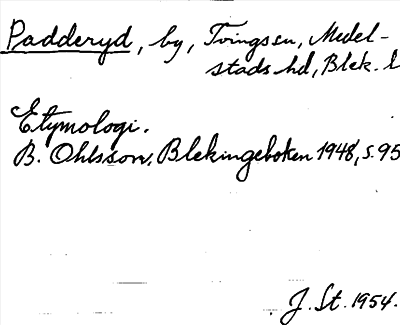 Padderyd, by, Tvings sn, Medel-
stads hd, Blek. l
Etymologi.
B. Ohlsson, Blekingeboken 1948, s. 95
J. St. 1954.